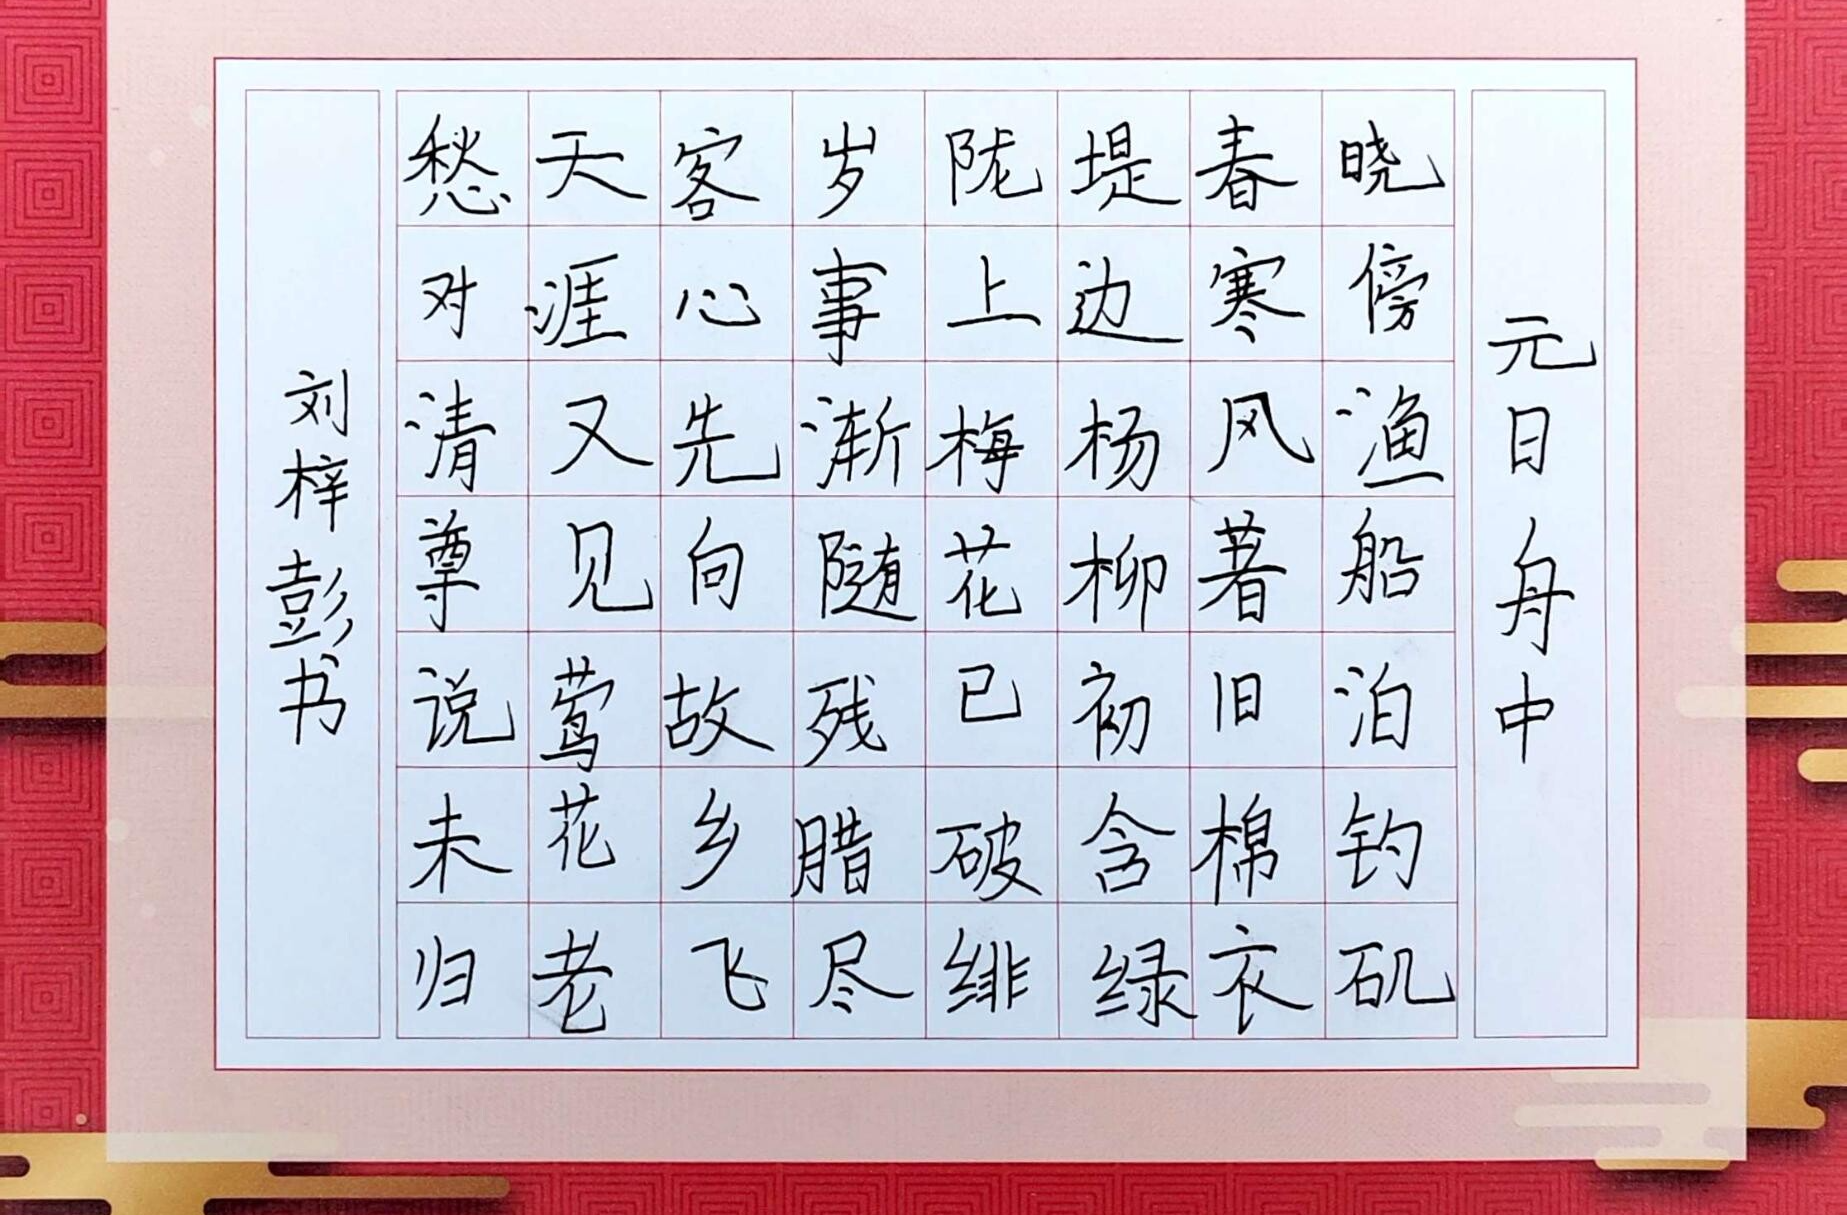 元日舟中
晓傍渔船泊钓矶
春寒风著旧棉衣
堤边杨柳初含绿
陇上梅花已破绯
岁事渐随残腊尽
客心先向故乡飞
天涯又见莺花老
愁对清尊说未归
刘梓彭书